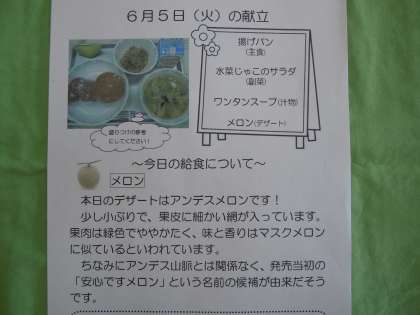 6月5日（火）の献立
揚げパン
（主食）
水菜じゃこのサラダ
（副菜）
ワンタンスープ（汁物）
メロン（デザート）
盛りつけの参考
にしてください！
～今日の給食について～
メロン
本日のデザートはアンデスメロンです！
少し小ぶりで、果皮に細かい網が入っています。
果肉は緑色でややかたく、味と香りはマスクメロン
に似ているといわれています。
ちなみにアンデス山脈とは関係なく、発売当初の
「安心ですメロン」という名前の候補が由来だそう
です。